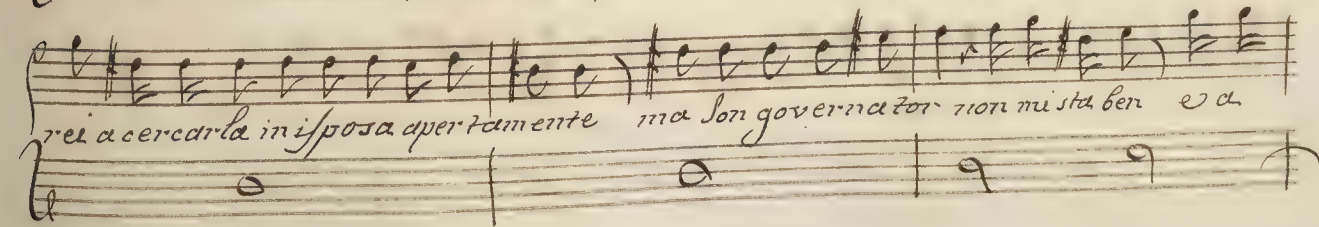 rei a cercarla in isposa apertamente ma son governator non mi sta ben e a